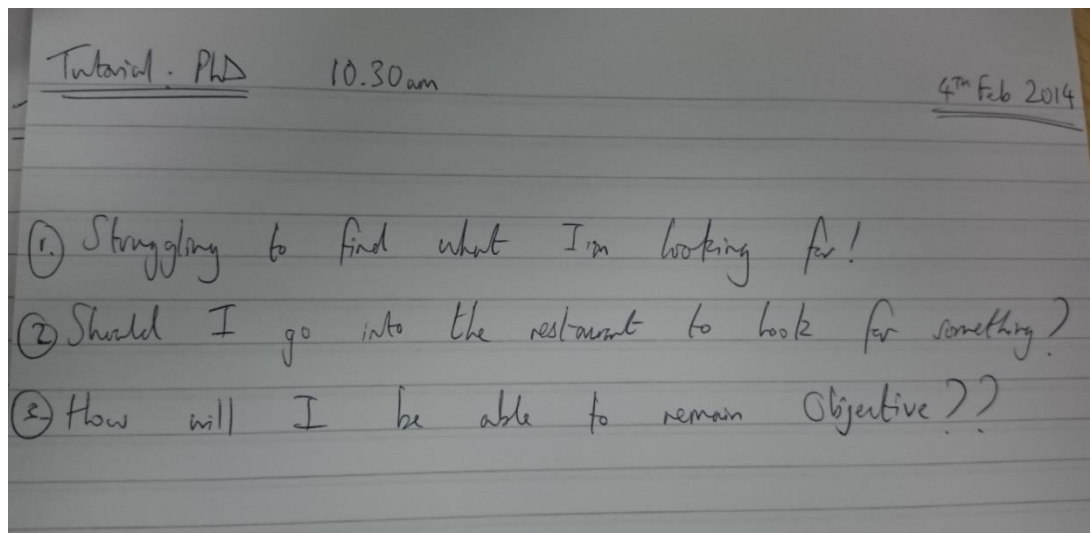 Tutorial. PhD 10.30am 4TH Feb 2014
1. Struggling to find what I'm looking for!
2. Should I go into the restaurant to look for something?
3. How will I be able to remain Objective??